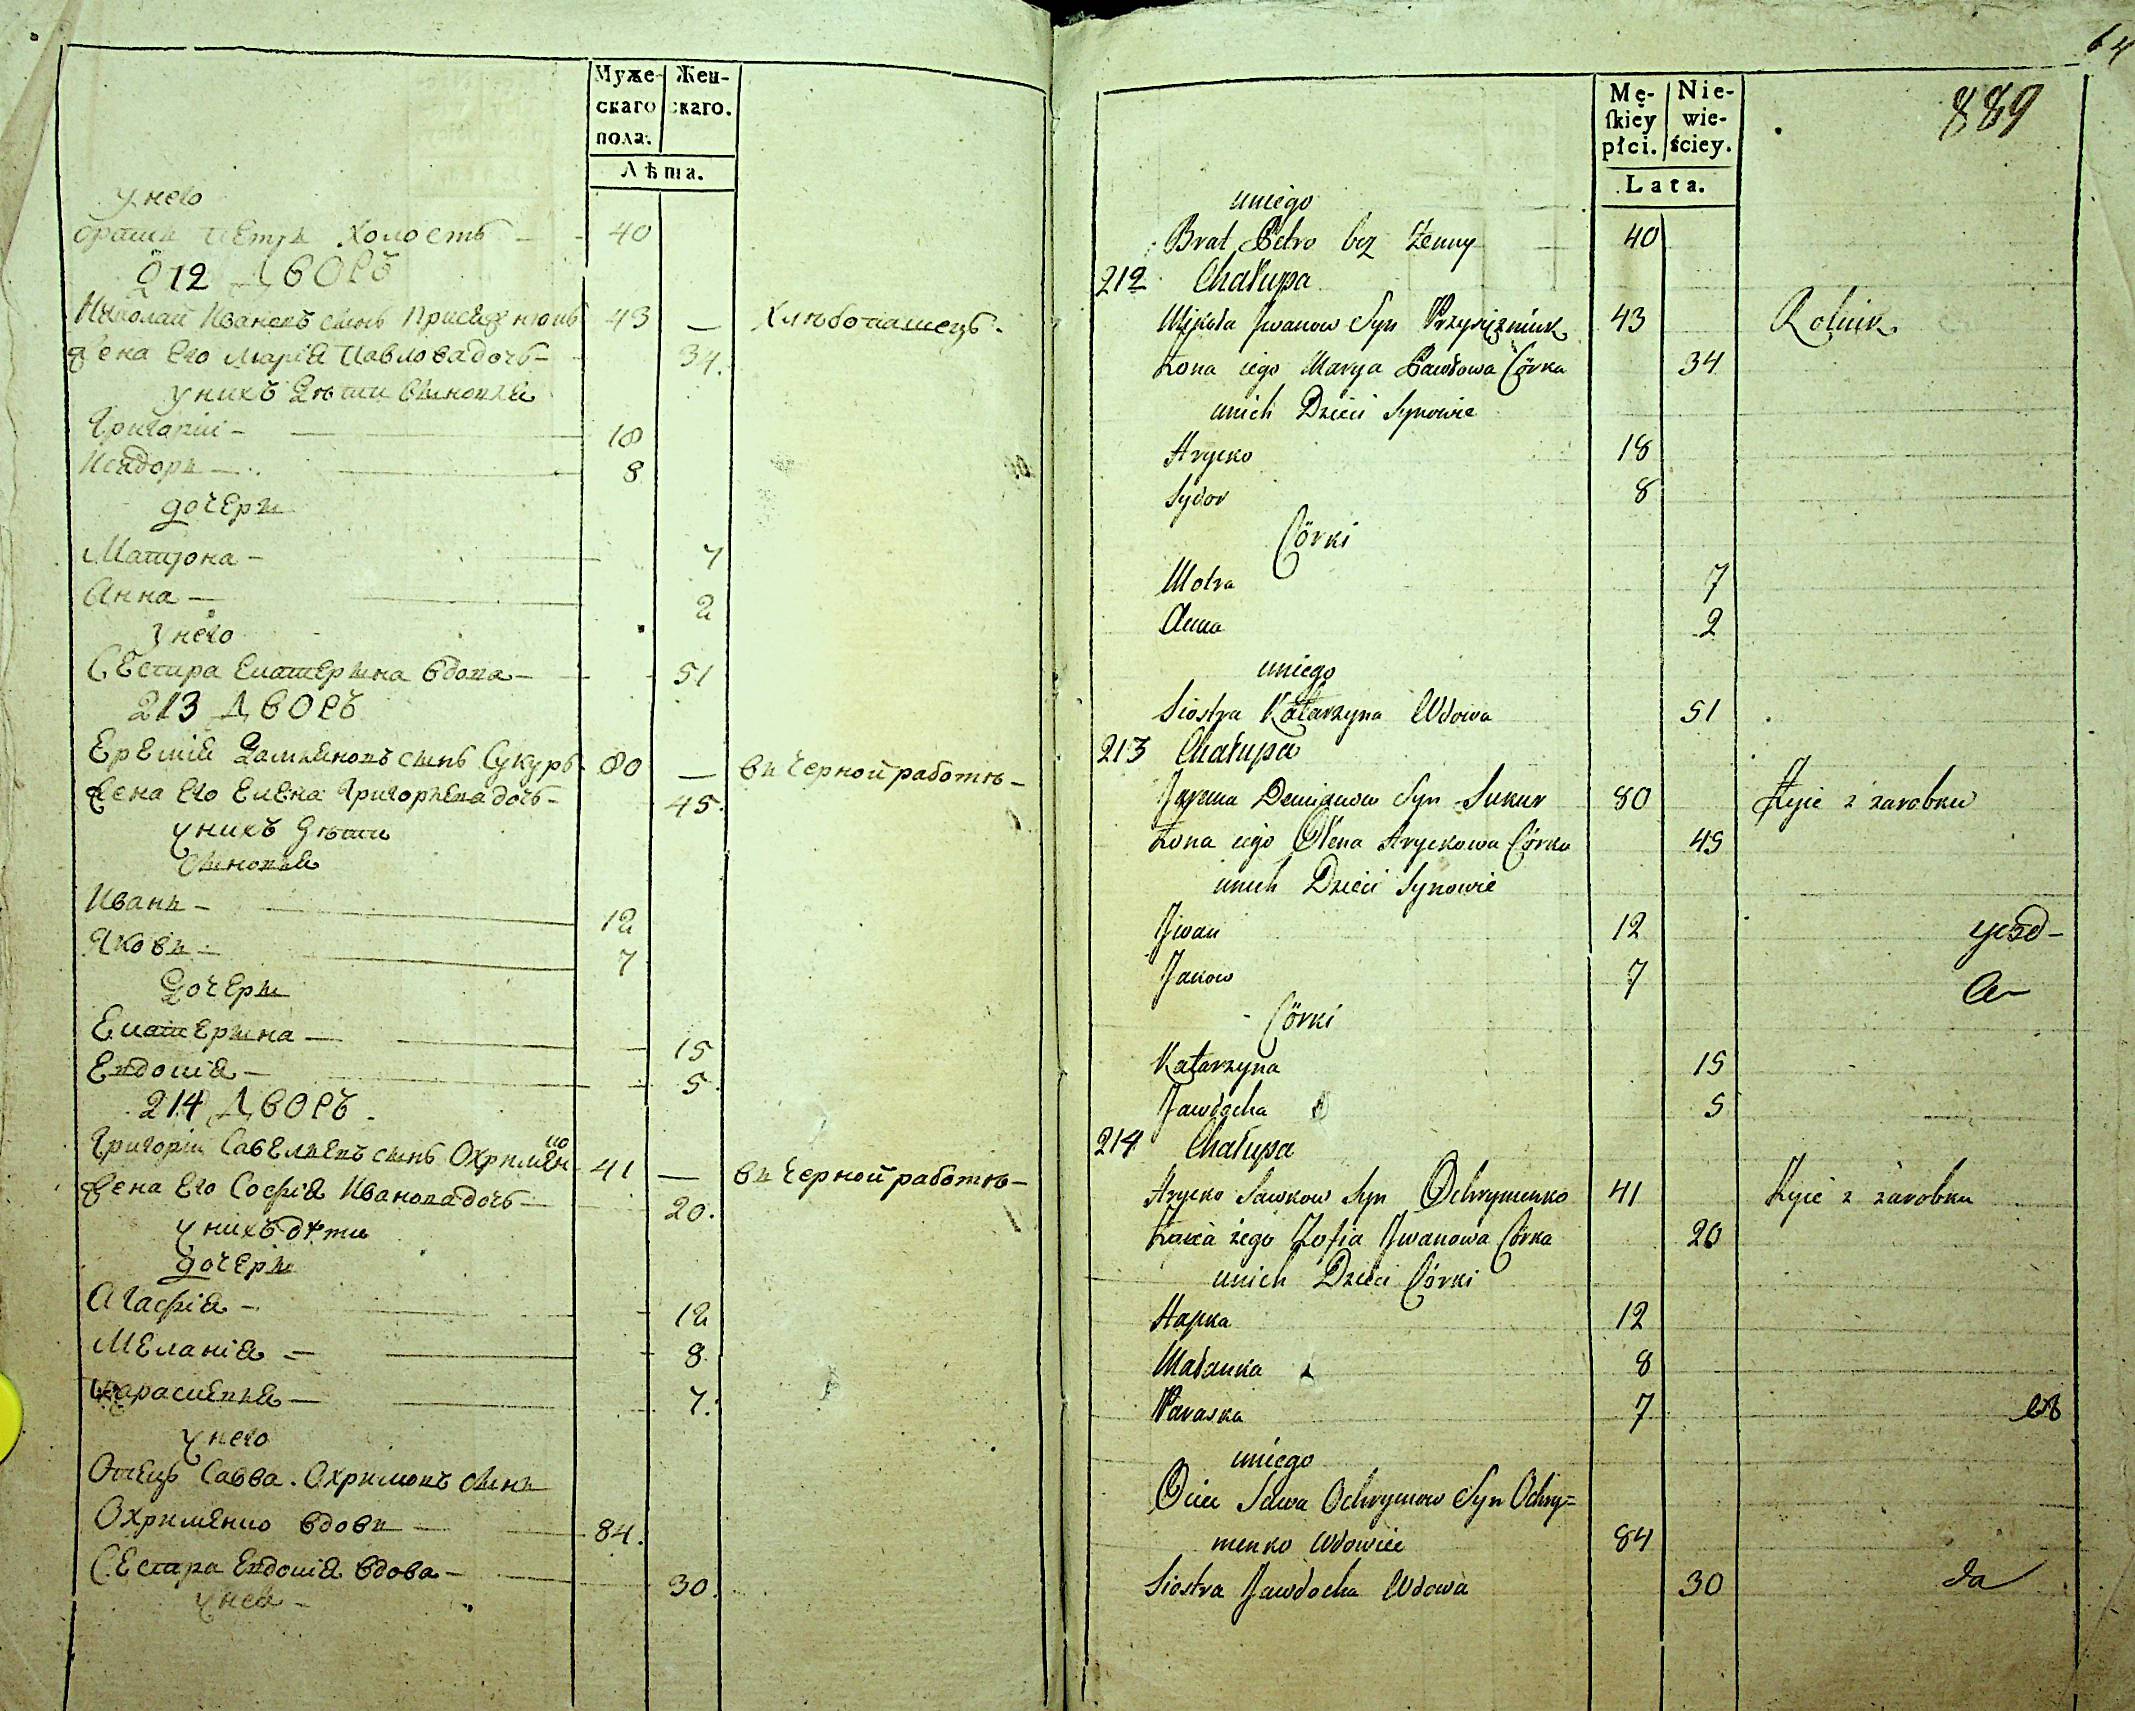 Муже- Жен-
скаго скаго.
пола.
Лѣта.
у него
братъ Петръ холостъ 40
212 дворъ
Николай Ивановъ сынъ Присяжнюкъ 43 — Хлѣбопашецъ.
жена его Марія Павлова дочь 34.
у нихъ дѣти сыновья
Григорій 18
Исидоръ 8
дочери
Матрона 7
Анна 2
у него
Сестра Екатерина вдова 51
213 дворъ
Еремій Домьяновъ сынъ Сукуръ 80 — въ черной работѣ
жена его Елена Григорьева дочь 45.
у нихъ дѣти
сыновья
Иванъ 12
Яковъ 7
дочери
Екатерина 15
Евдокія 5.
214 дворъ
Григорій Савельевъ сынъ Охрименко 41 — въ черной работѣ
жена его Софія Иванова дочь 20.
у нихъ дѣти
дочери
Агафія 12
Меланія 8.
Парасковья 7.
у него
Отецъ Савва Охримовъ сынъ
Охрименко вдовъ 84.
Сестра Евдокія вдова 30.
у нея
64
Mę- Nie-
ſkiey wie-
płci. ściey.
Lata.
889
uniego
Brat Petro bez Żenny 40
212 Chałupa
Mikoła Jwanow Syn Przysiężniuk 43 Rolnik
Żona iego Marya Pawłowa Córka 34
unich Dzieci Synowie
Hrycko 18
Sydor 8
Córki
Motra 7
Anna 2
uniego
Siostra Katarzyna Wdowa 51
213 Chałupa
Jarema Demianow Syn Sukur 80 Żyie z zarobku
Żona iego Ołena Hryckowa Córka 45
unich Dzieci Synowie
Jwan 12
Jakow 7
Córki
Katarzyna 15
Jawdocha 5
214 Chałupa
Hrycko Sawkow Syn Ochrymenko 41 Żyie z zarobku
Żona iego Zofia Jwanowa Córka 20
unich Dzieci Córki
Hapka 12
Małanka 8
Paraska 7
uniego
Ociec Sawa Ochrymow Syn Ochry=
menko Wdowiec 84
Siostra Jawdocha Wdowa 30